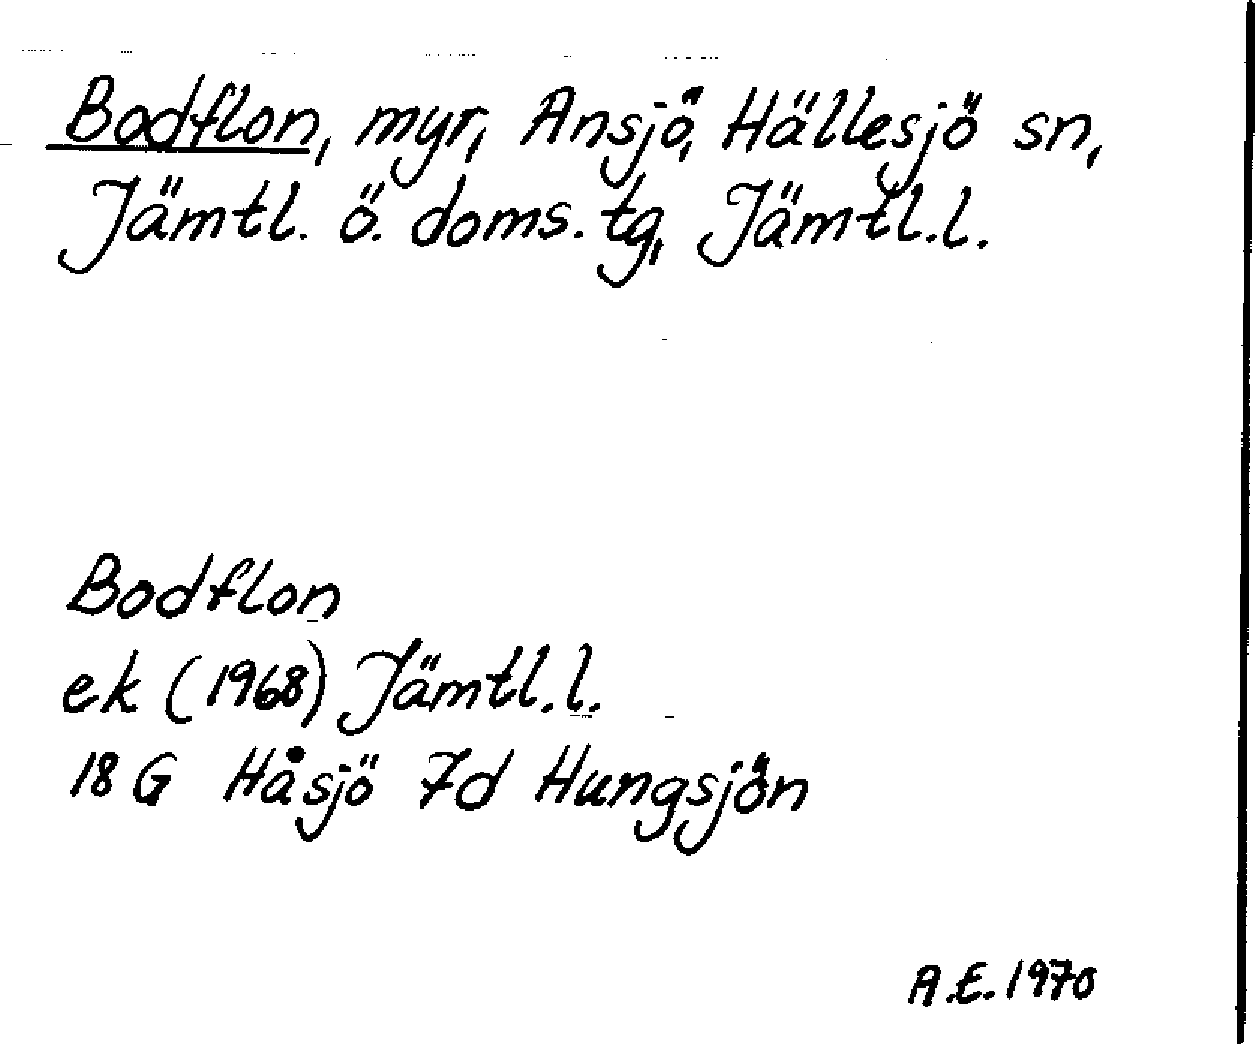 Bodflon, myr, Ansjö, Hällesjö sn,
Jämtl. ö. doms. tg, Jämtl.l.
Bodflon
ek (1968) Jämtl.l.
18 G Håsjö 7d Hungsjön
A.E. 1970